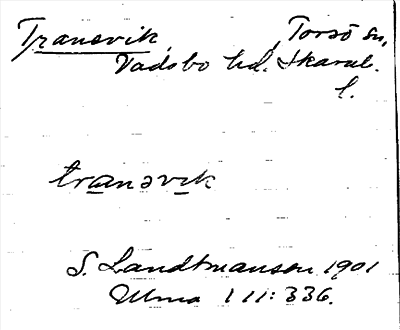 Transvik, Torsö sn,
Vadsbo hd, Skarab.
l.
tranəvik
S. Landtmanson 1901
Ulma 111:336.